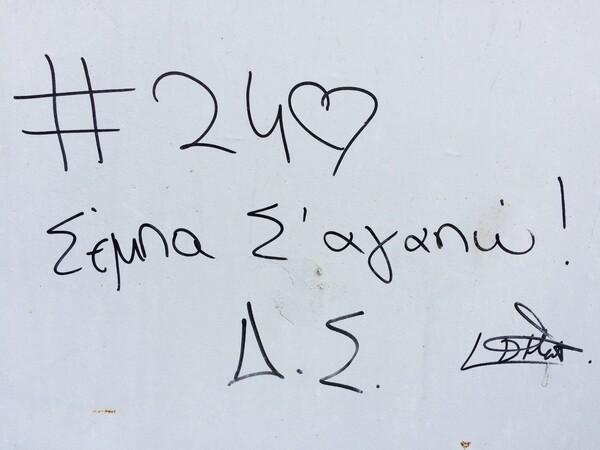 #24♡
Σέμπα Σ'αγαπώ!
Δ.Σ.